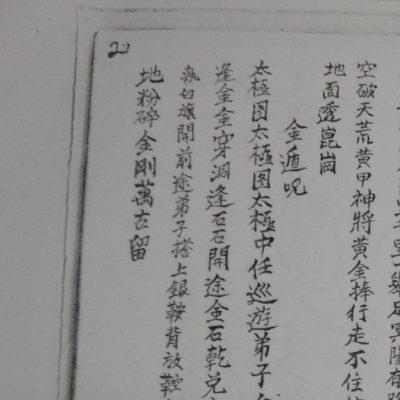 空破天荒黄甲神將黄金捧行走不住
地面透崑崗
金遁咒
太極图太極图太極中任巡遊弟子
逢金金穿洞逢石石開途金石乾兑
執白旗開前途弟子搭上銀鞍背放鞍
地粉碎金剛萬古留
20